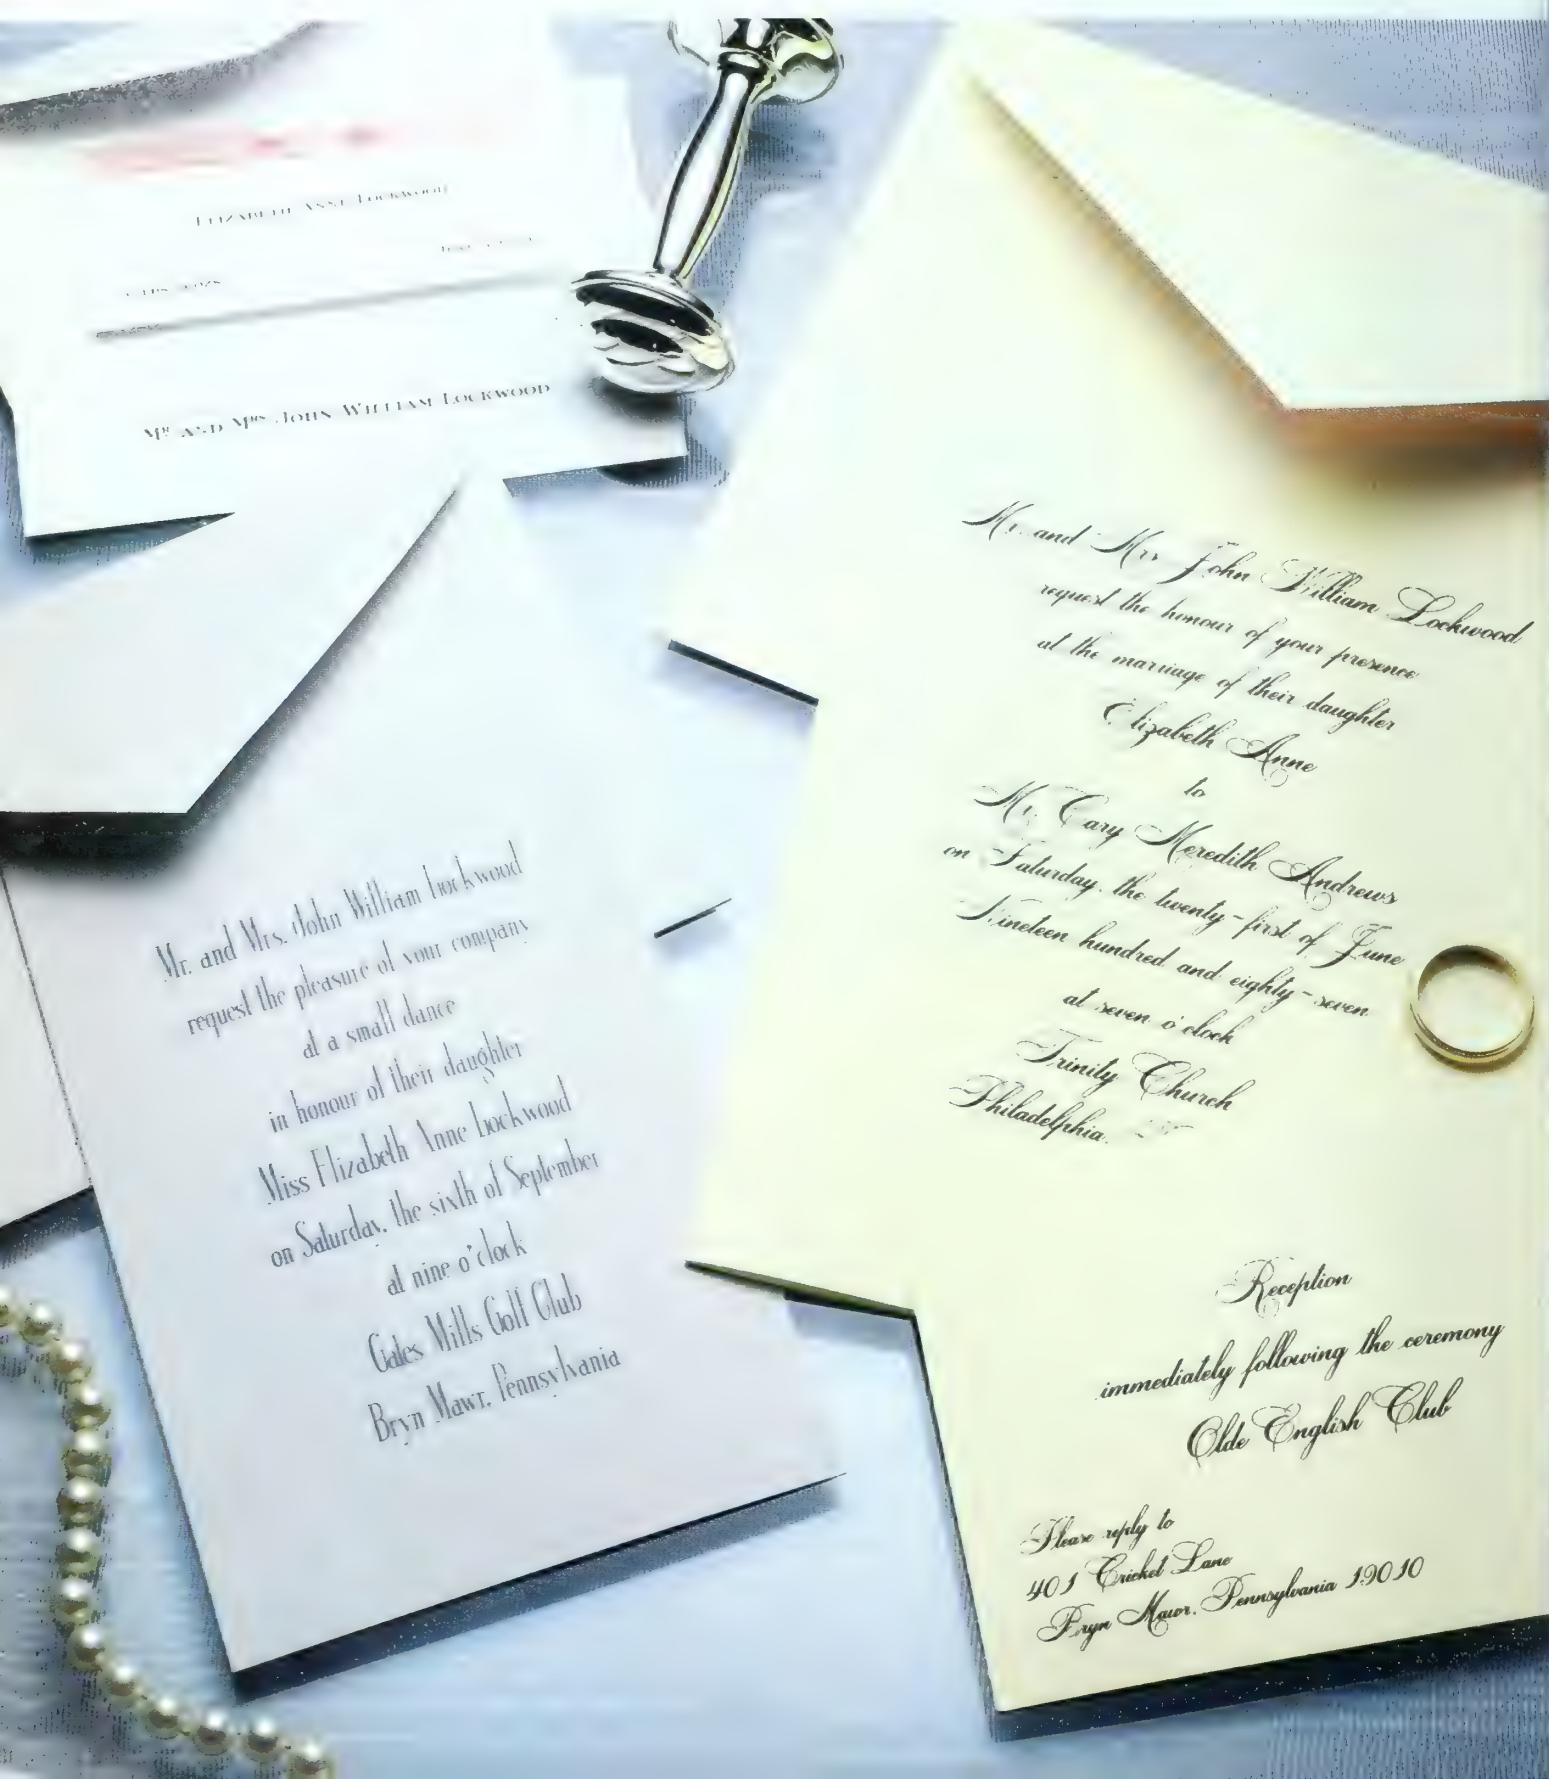 ELIZABETH ANNE LOCKWOOD
MR. AND MRS. JOHN WILLIAM LOCKWOOD
Mr. and Mrs. John William Lockwood
request the pleasure of your company
at a small dance
in honour of their daughter
Miss Elizabeth Anne Lockwood
on Saturday, the sixth of September
at nine o'clock
Gates Mills Golf Club
Bryn Mawr, Pennsylvania
Mr. and Mrs John William Lockwood
request the honour of your presence
at the marriage of their daughter
Elizabeth Anne
to
Mr. Cary Meredith Andrews
on Saturday, the twenty-first of June
Nineteen hundred and eighty-seven
at seven o'clock
Trinity Church
Philadelphia
Reception
immediately following the ceremony
Olde English Club
Please reply to
401 Cricket Lane
Bryn Mawr, Pennsylvania 19010